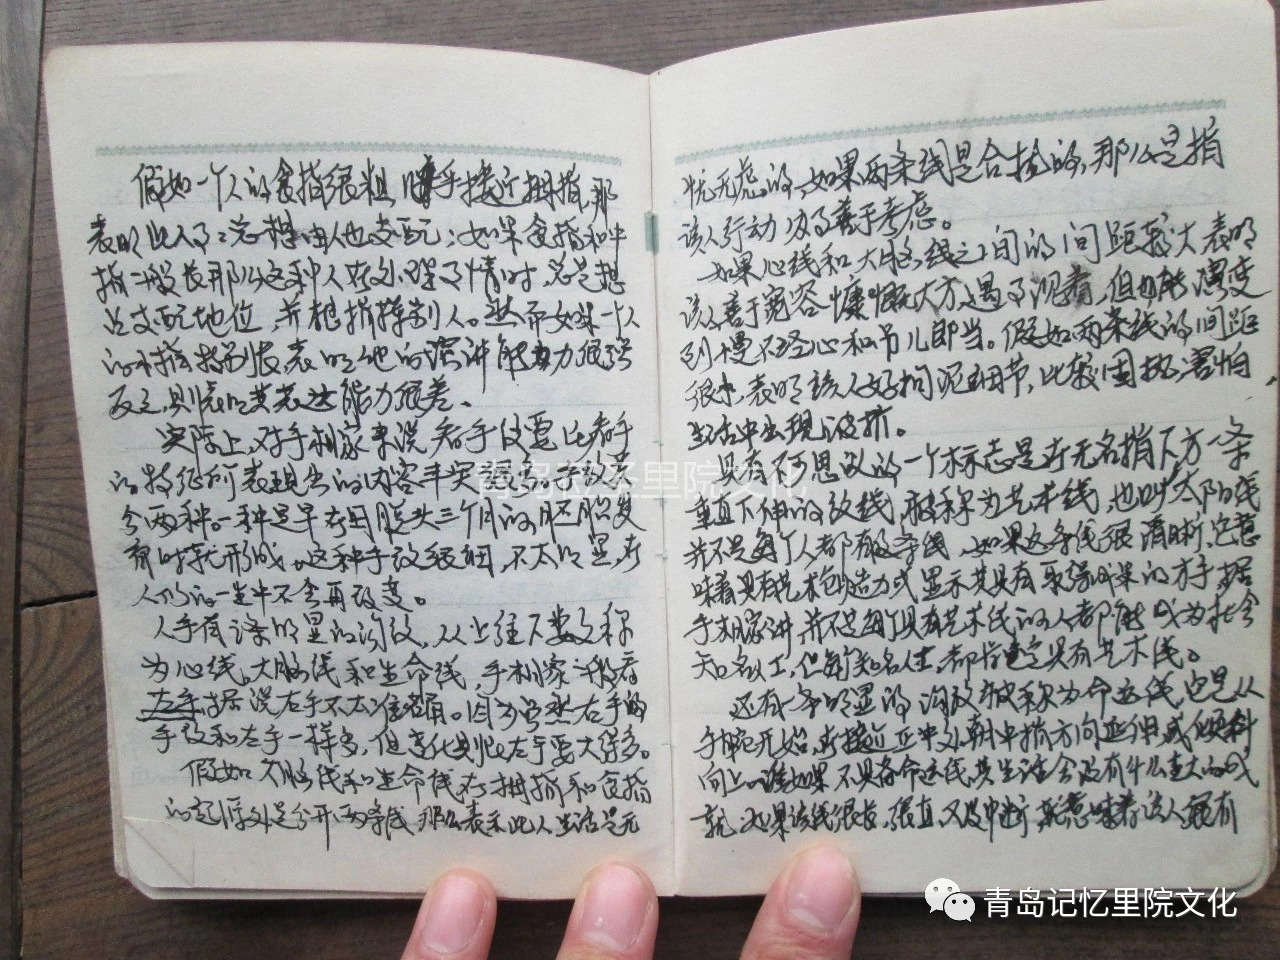 假如一个人的食指很粗，手接近拇指，那
表明此人总想由人他支配；如果食指和中
指一般长那么这种人在处理事情时，总是想
占支配地位，并想指挥别人。然而如果一个
的小指特别长，表明他的演讲能力很强
反之，则表明其表达能力很差、
实际上，对手相家来说看手仪要比看手
的特征所表现出的内容丰实
两种。一种是早在三个月的胚胎发
育时就形成。这种手纹很细，不太明显，在
人们的一生中不会再改变。
人手有三条明显的沟纹，从上往下数又称
为心线。大脑线和生命线，手相家一般看
左手据说右手不太准确。因为虽然右手的
手纹和左手一样多，但变化则比左手要大得多。
假如大脑线和生命线在拇指和食指
的起源处是分开的两条线那么表示此人生活是无
忧无虑的，如果两条线是合拢的，那么是指
该人行动及善于考虑。
如果心线和大脑线之间的间距较大表明
该人善于宽容慷慨大方，遇事沉着，但也能演变
到漫不经心和吊儿郎当。假如两条线的间距
很小，表明该人好拘泥细节，比较固执，害怕
生活中出现波折。
具有不可思议的一个标志是在无名指下方一条
垂直下伸的纹线，被称为艺术线，也叫太阳线
并不是每个人都有这条线，如果这条线很清晰，它意
味着具有艺术创造力或显示其具有取得成果的才手据
手相家讲，并不是每个具有艺术线的人都能成为社会
知名人士，但每个知名人士，都肯定具有艺术线。
还有一条明显的沟纹被称为命运线，它是从
手腕开始，在接近正中处，朝中指方向延伸或倾斜
向上的谁如果不具有命运线，其生活会没有什么重大的成
就，如果该线很长，很直，又没中断，就意味着该人很有
青岛记忆里院文化
青岛记忆里院文化